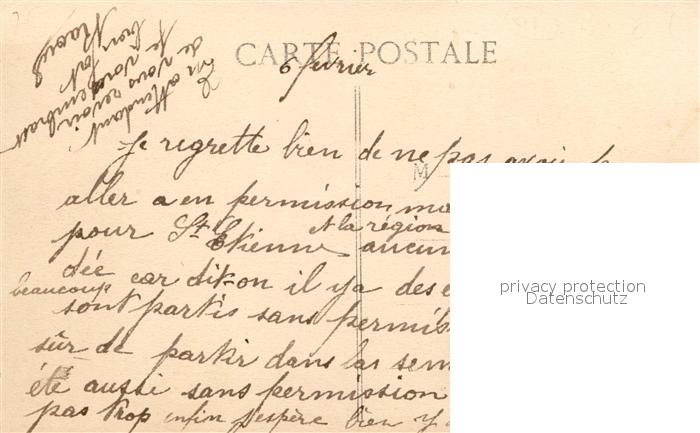 CARTE POSTALE
6 février
Je regrette bien de ne pas avoir
aller a en permission
et la région
pour St Etienne aucun
dée car dit-on il y a des
beaucoup
sont partis sans permis
sûr de partir dans la sem
été aussi sans permission
pas trop enfin j'espère bien y
En attendant
de vous revoir
je vous embrasse
bon
M
privacy protection
Datenschutz